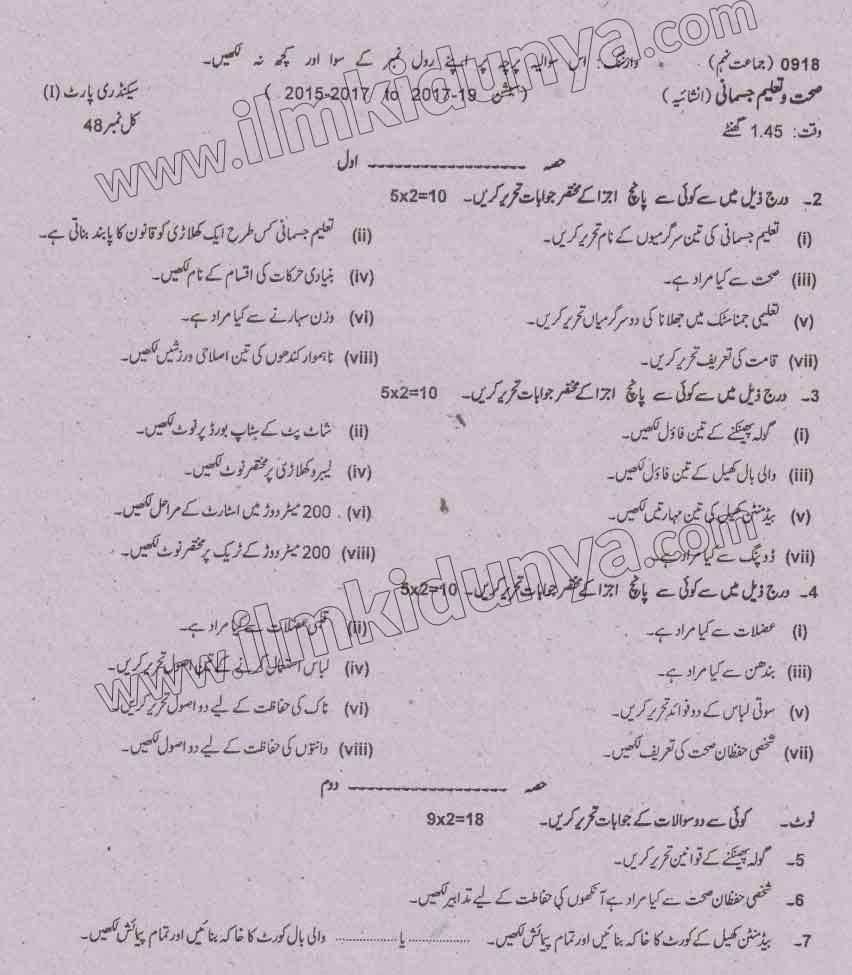 0918 (جماعت نہم) وارننگ: اس سوالیہ پرچہ پر اپنے رول نمبر کے سوا اور کچھ نہ لکھیں۔
صحت و تعلیم جسمانی (انشائیہ) (سیشن 2015-2017 to 2017-19) سیکنڈری پارٹ (I)
وقت: 1.45 گھنٹے کل نمبر 48
حصہ ـــــــــــــــــــــ اول
2۔ درج ذیل میں سے کوئی سے پانچ اجزا کے مختصر جوابات تحریر کریں۔ 5x2=10
(i) تعلیم جسمانی کی تین سرگرمیوں کے نام تحریر کریں۔ (ii) تعلیم جسمانی کس طرح ایک کھلاڑی کو قانون کا پابند بناتی ہے۔
(iii) صحت سے کیا مراد ہے۔ (iv) بنیادی حرکات کی اقسام کے نام لکھیں۔
(v) تعلیمی جمناسٹک میں جھلانا کی دو سرگرمیاں تحریر کریں۔ (vi) وزن سہارنے سے کیا مراد ہے۔
(vii) قامت کی تعریف تحریر کریں۔ (viii) ناہموار کندھوں کی تین اصلاحی ورزشیں لکھیں۔
3۔ درج ذیل میں سے کوئی سے پانچ اجزا کے مختصر جوابات تحریر کریں۔ 5x2=10
(i) گولہ پھینکنے کے تین فاؤل لکھیں۔ (ii) شاٹ پٹ کے سٹاپ بورڈ پر نوٹ لکھیں۔
(iii) والی بال کھیل کے تین فاؤل لکھیں۔ (iv) لیبرو کھلاڑی پر مختصر نوٹ لکھیں۔
(v) بیڈمنٹن کھیل کی تین مہارتیں لکھیں۔ (vi) 200 میٹر دوڑ میں اسٹارٹ کے مراحل لکھیں۔
(vii) ڈوپنگ سے کیا مراد ہے۔ (viii) 200 میٹر دوڑ کے ٹریک پر مختصر نوٹ لکھیں۔
4۔ درج ذیل میں سے کوئی سے پانچ اجزا کے مختصر جوابات تحریر کریں۔ 5x2=10
(i) عضلات سے کیا مراد ہے۔ (ii) قلبی عضلات سے کیا مراد ہے۔
(iii) بندھن سے کیا مراد ہے۔ (iv) لباس استعمال کرنے کے تین اصول تحریر کریں۔
(v) سوتی لباس کے دو فوائد تحریر کریں۔ (vi) ناک کی حفاظت کے لیے دو اصول تحریر کریں۔
(vii) شخصی حفظان صحت کی تعریف لکھیں۔ (viii) دانتوں کی حفاظت کے لیے دو اصول لکھیں۔
حصہ ـــــــــــــــــــــ دوم
نوٹ۔ کوئی سے دو سوالات کے جوابات تحریر کریں۔ 9x2=18
5۔ گولہ پھینکنے کے قوانین تحریر کریں۔
6۔ شخصی حفظان صحت سے کیا مراد ہے آنکھوں کی حفاظت کے لیے تدابیر لکھیں۔
7۔ بیڈمنٹن کھیل کے کورٹ کا خاکہ بنائیں اور تمام پیمائش لکھیں۔ ............... یا ............... والی بال کورٹ کا خاکہ بنائیں اور تمام پیمائش لکھیں۔
www.ilmkidunya.com
www.ilmkidunya.com